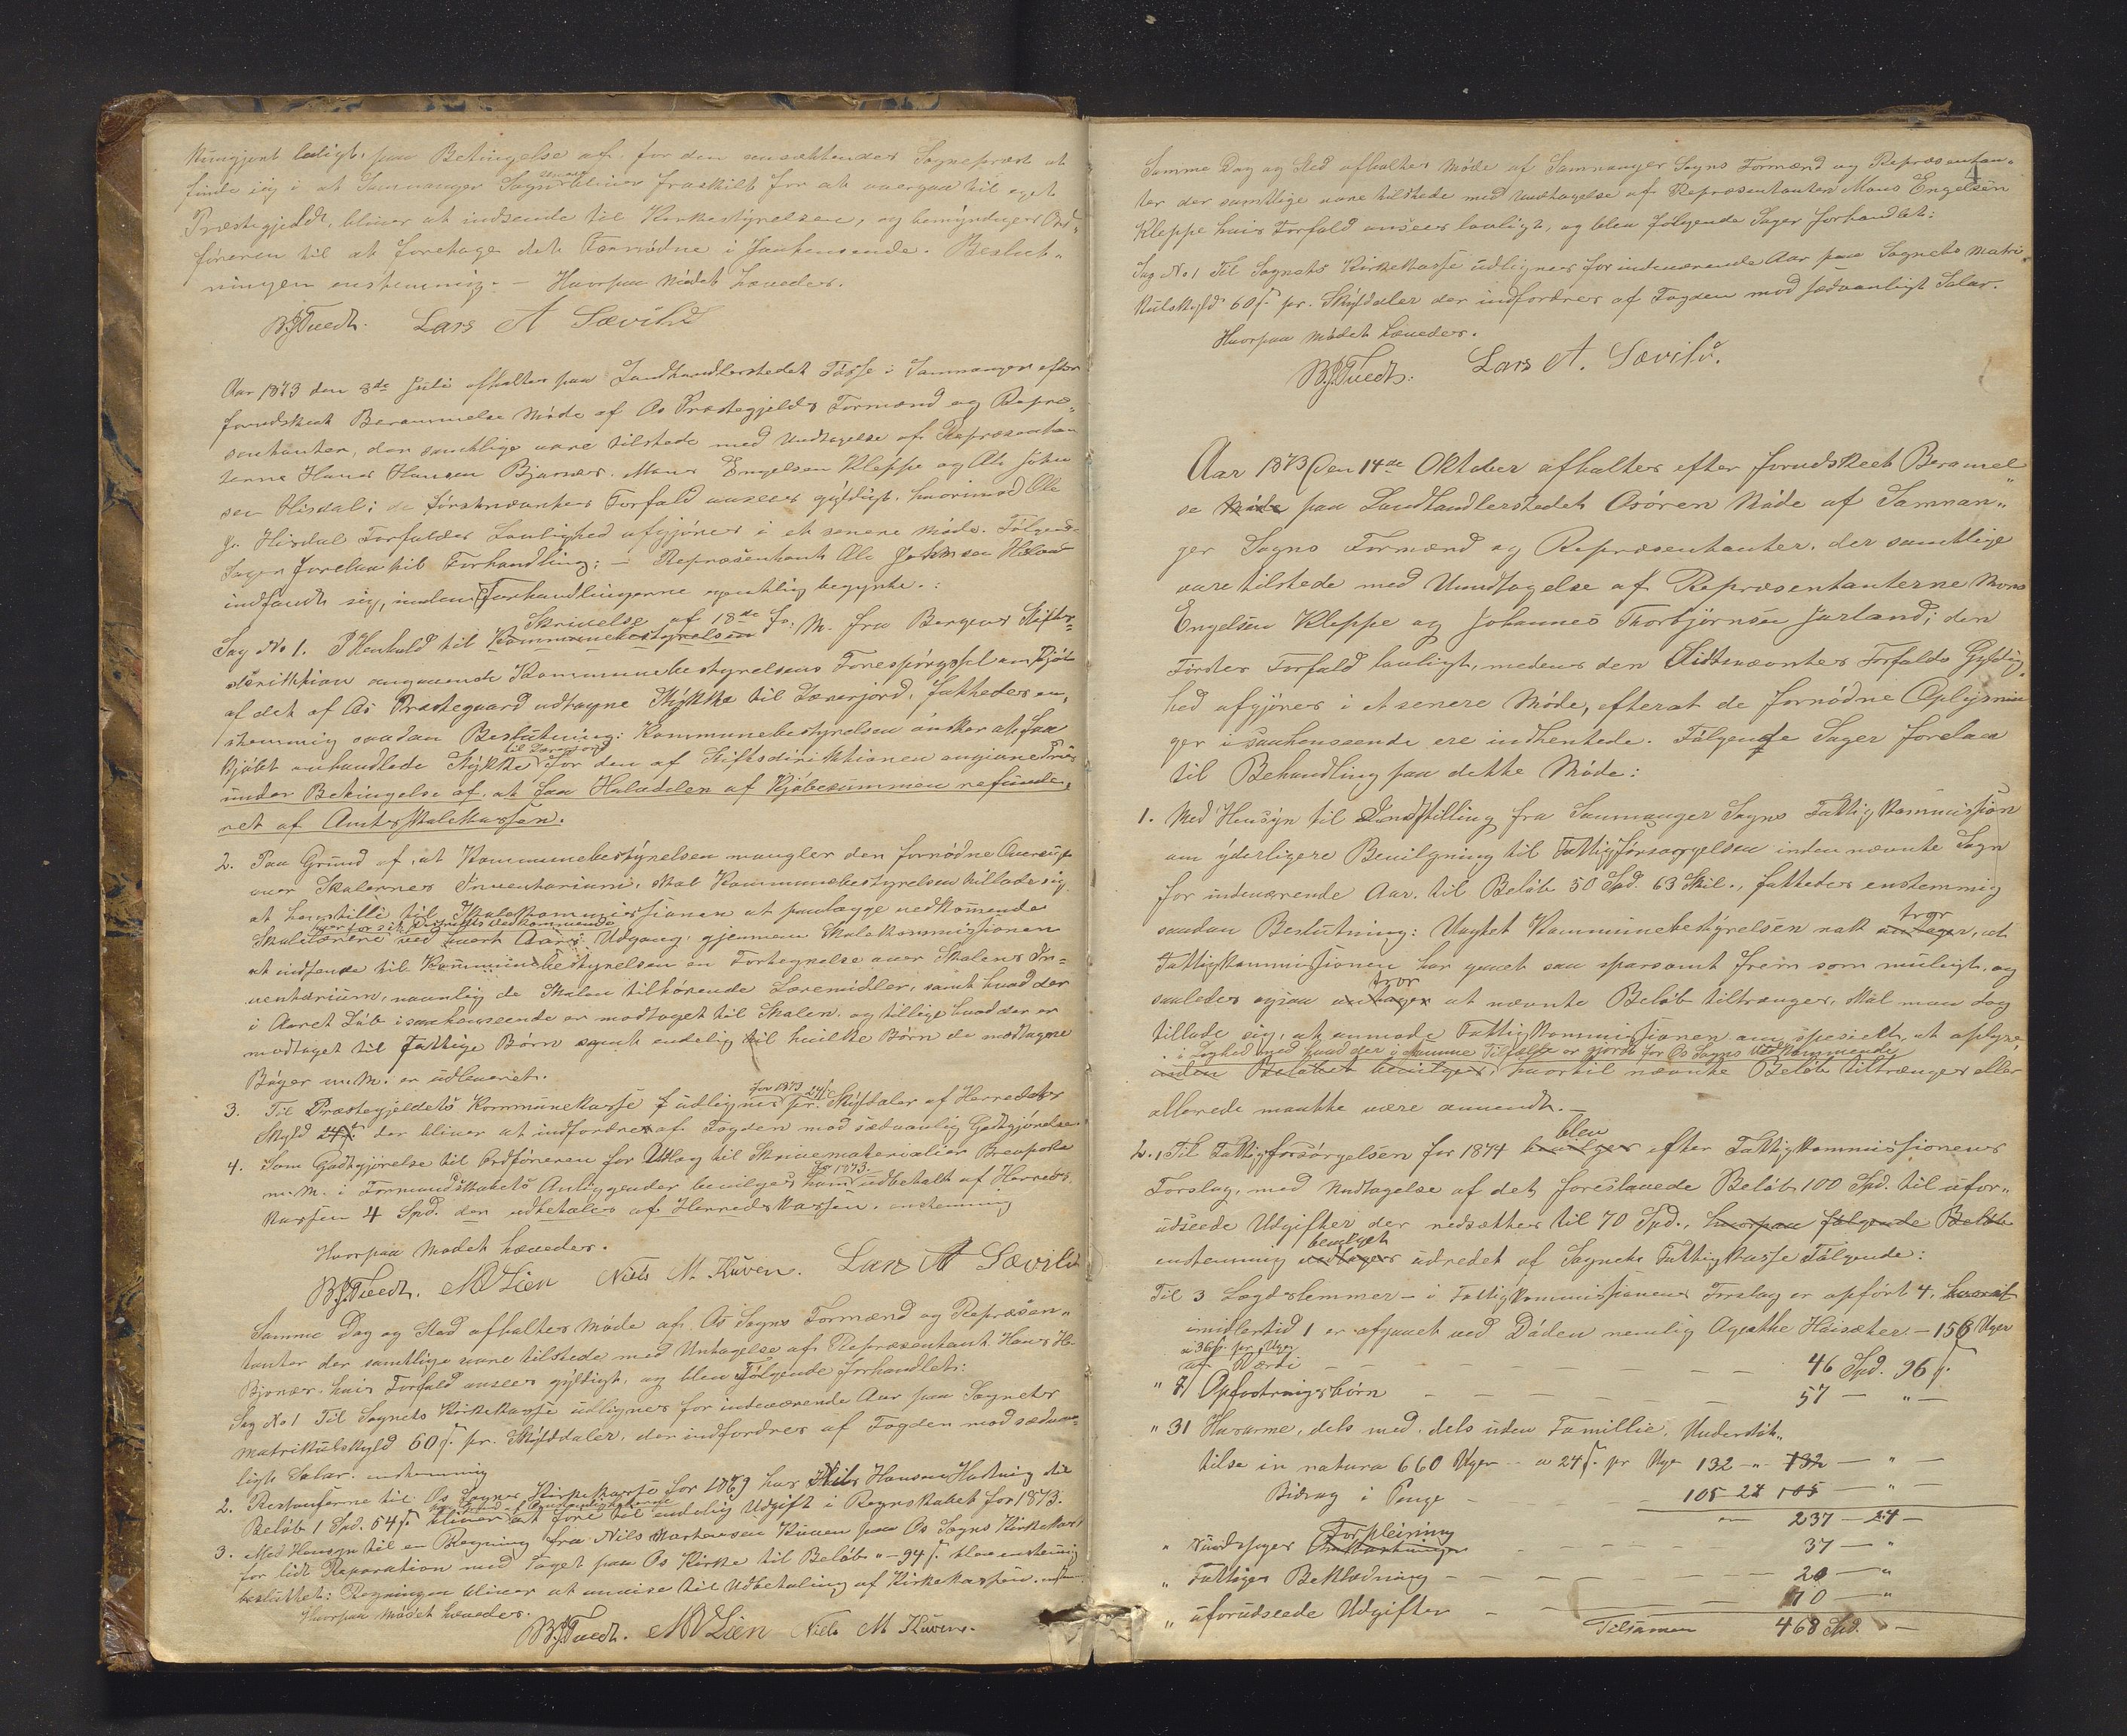 kungjort ledigt, paa Betingelse af, for den ansættendes Sogneprest at
finde sig i at Samnanger Sogn bliver fraskilt for at overgaa til eget
Præstegjeld, bliver at indsende til Kirkestyrelsen, og bemyndiges Ord-
føreren til at foretage det Fornødne i Saahenseende. Beslut-
ningen enstemmig. — Hvorpaa Mødet hævedes.
B.J. Tvedt. Lars A Sævild
Aar 1873 den 8de Juli afholtes paa Landhandlerstedet Tøsse i Samnanger efter
forudskeet Berammelse Møde af Os Præstegjelds Formænd og Repræ-
sentanter, der samtlige vare tilstede med Undtagelse af Repræsentan-
terne Hans Hansen Bjørnær, Mons Engelsen Kleppe og Ole John
sen Hisdal; de førstnævntes Forfald ansees gyldigt, hvorimod Ole
J. Hisdal Forfaldes Lovlighed afgjøres i et senere Møde. Følgende
Sager forelaa til Forhandling: — Repræsentant Ole Johnsen Hisdal
indfandt sig, inden Forhandlingerne egentlig begynte.:
Sag No 1. I Henhold til Kommunebestyrelsen Skrivelse af 18de f. M. fra Bergens Stifts-
direktion angaaende Kommunebestyrelsens Forespørgsel om Kjøb
af det af Os Præstegaard udtagne Stykke til Lærerjord, fattedes en-
stemmig saadan Beslutning: Kommunebestyrelsen ønsker at faa
kjøbt omhandlede Stykke til Lærerjord for den af Stiftsdirektionen angivne Pris
under Betingelse af, at faa Halvdelen af Kjøbesummen refunde-
ret af Amtsskolekassen.
2. Paa Grund af, at Kommunebestyrelsen mangler den fornødne Oversigt
over Skolernes Inventarium, skal Kommunebestyrelsen tillade sig
at henstille til Skolekommissionen at paalægge vedkommende
Skolelærere hver for sit Distrikts Vedkommende ved hvert Aars Udgang, gjennem Skolekommissionen
at indsende til Kommunebestyrelsen en Fortegnelse over Skolens In-
ventarium, navnlig de Skolen tilhørende Læremidler, samt hvad der
i Aaret Løb i saahenseende er modtaget til Skolen, og tillige hvad der er
modtaget til fattige Børn samt endelig til hvilke Børn de modtagne
Bøger m. M. er udleveret.
3. Til Præstegjeldets Kommunekasse udlignes for 1873 24 s. pr. Skylddaler af Herredets
Skyld 24 s. der bliver at indfordre af Fogden mod sædvanlig Godtgjørelse.
4. Som Godtgjørelse til Ordføreren for Udlæg til Skrivematerialier Brevporto
m. M. i Formandskabets Anliggender bevilges ham for 1873 udbetalt af Herreds
kassen 4 Spd. der udbetales af Herredskassen. enstemmig
Hvorpaa Mødet hævedes.
B.J. Tvedt. M O Lien Niels M. Kuven. Lars A Sævild
Samme Dag og Sted afholtes Møde af Os Sogns Formænd og Repræsen-
tanter der samtlige vare tilstede med Untagelse af Repræsentant Hans H.
Bjørnær, hvis Forfald ansees gyldigt, og blev Følgende forhandlet:
Sag No 1 Til Sognets Kirkekasse udlignes for indeværende Aar paa Sognets
Matrikulskyld 60 s. pr. Skylddaler, der indfordres af Fogden mod sædvan-
ligt Salar. enstemmig
2. Restanserne til Os Sogns Kirkekasse for 1869 hos Nils Hansen Hatvig til
Beløb 1 Spd. 54 s. bliver at føre til endelig Udgift i Regnskabet for 1873.
3. Med Hensyn til en Regning fra Nils Mortensen Kuven paa Os Sogns Kirkekasse
for lidt Reparation med Taget paa Os Kirke til Beløb " - 94 s. blev enstemmig
besluttet: Regningen bliver at anvise til Udbetaling af Kirkekassen.
Hvorpaa Mødet hævedes.
B.J. Tvedt. M O Lien Niels M Kuven.
4
Samme Dag og Sted afholtes Møde af Samnanger Sogns Formænd og Repræsentan-
ter der samtlige vare tilstede med Undtagelse af Repræsentanten Mons Engelsen
Kleppe hvis Forfald ansees lovligt, og blev følgende Sager forhandlet:
Sag No 1 Til Sognets Kirkekasse udlignes for indeværende Aar paa Sognets Matri-
kulskyld 60 s. pr. Skylddaler der indfordres af Fogden mod sædvanligt Salar.
Hvorpaa Mødet hævedes.
B.J. Tvedt. Lars A. Sævild.
Aar 1873 den 14de Oktober afholtes efter forudskeet Berammel
se Møde paa Landhandlerstedet Osøren Møde af Samnan-
ger Sogns Formænd og Repræsentanter, der samtlige
vare tilstede med Unndtagelse af Repræsentanterne Mons
Engelsen Kleppe og Johannes Thorbjørnsen Jarland; den
Førstes Forfald lovligt, medens den Sidstnævntes Forfalds Gyldig-
hed afgjøres i et senere Møde, efterat de fornødne Oplysnin
ger i saahenseende ere indhentede. Følgende Sager forelaa
til Behandling paa dette Møde:
1. Med Hensyn til Indstilling fra Samnanger Sogns Fattigkommission
om yderligere Bevilgning til Fattigforsørgelsen inden nævnte Sogn
for indeværende Aar, til Beløb 50 Spd. 63 Skil., fattedes enstemmig
saadan Beslutning: Uagtet Kommunebestyrelsen nok antager, tror at
Fattigkommissionen har gaaet saa sparsomt frem som muligt, og
saaledes ogsaa antager tror at nævnte Beløb tiltrænges, skal man dog
tillade sig, at anmode Fattigkommissionen om spesielt at oplyse,
i Lighed med hvad der i samme Tilfælde er gjort for Os Sogns Vedkommende
inden Beløbet bevilges, hvortil nævnte Beløb tiltrænges eller
allerede maatte være anvendt. —
2. Til Fattigforsørgelsen for 1874 bevilges blev efter Fattigkommissionens
Forslag, med Undtagelse af det foreslaaede Beløb 100 Spd. til ufor-
udseede Udgifter der nedsættes til 70 Spd., hvorpaa følgende Beløb
enstemmig vedtages bevilget udredet af Sognets Fattigkasse Følgende:
Til 3 Lægdslemmer – i Fattigkommissionens Forslag er opført 4, hvoraf
imidlertid 1 er afgaaet ved Døden nemlig Agathe Huisæter – 156 Uger
a 36 s. pr. Uge
af Værdi — — — — — 46 Spd. 96 s.
" 7 Opfostringsbørn — — — — 57 — " —
" 31 Husarme, dels med, dels uden Famillie, Understøt-
telse in natura 660 Uger – a 24 s. pr Uge 132 – " – 132 — " —
Bidrag i Penge — 105 24 105 — " —
237 — 24 —
" Sindssyges Forpleining — — — — 37 — "
" Fattiges Beklædning — — — — 20 — "
" uforudseede Udgifter — — — 70 — "
Tilsamen 468 Spd. " —